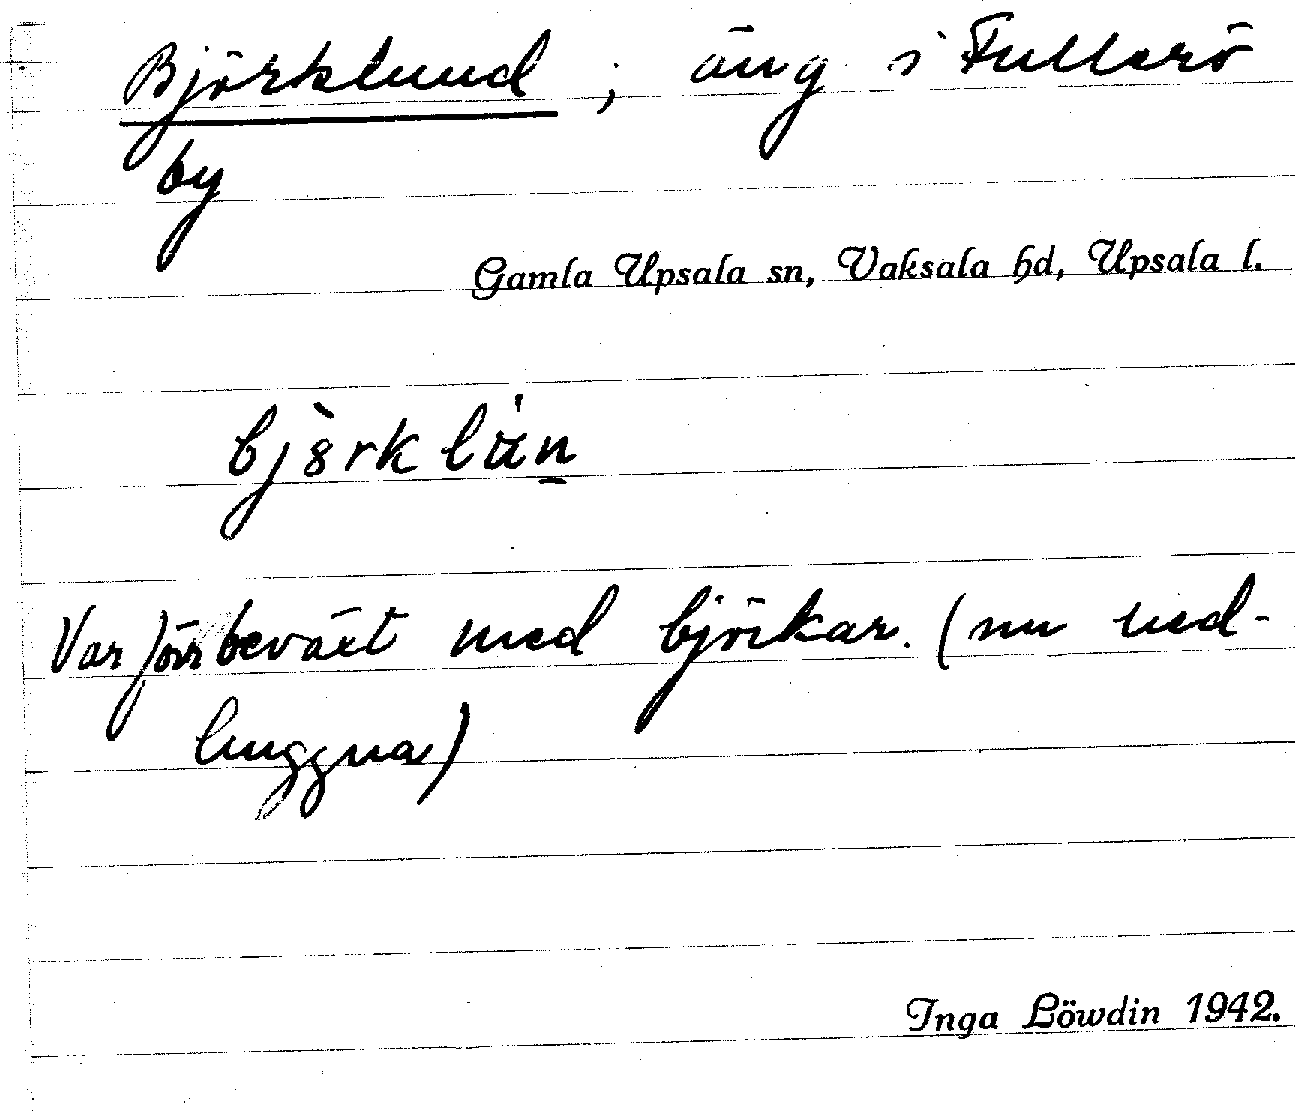 Björklund, äng i Fullerö
by
Gamla Upsala sn, Vaksala hd, Upsala l.
Var förr beväxt med björkar. (nu ned-
huggna)
Inga Löwdin 1942.